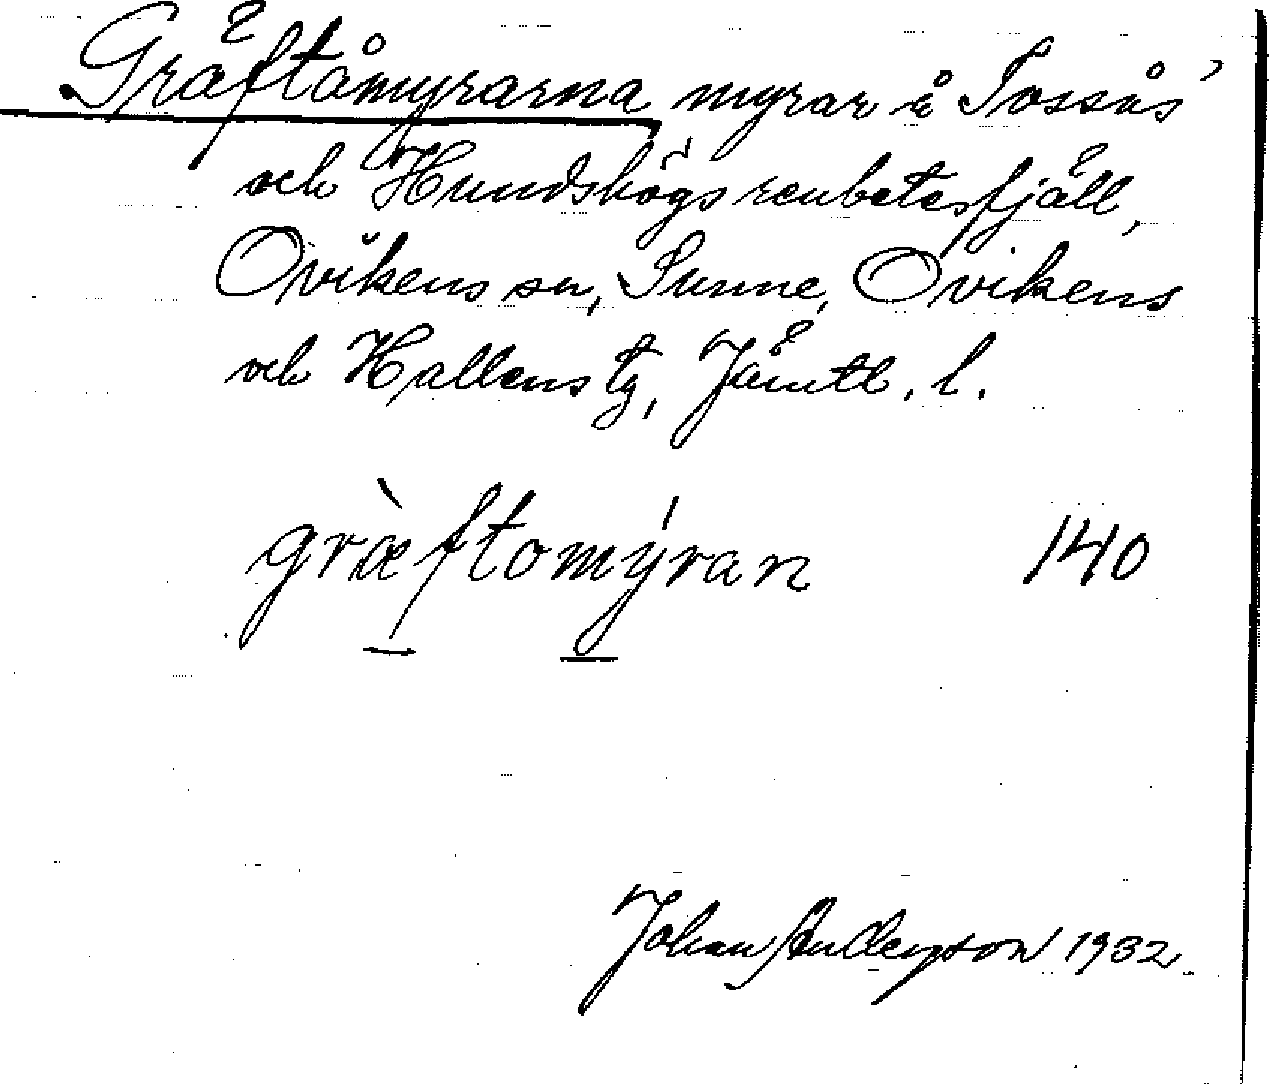 Gräftåmyrarna, myrar å Tossås'
och Hundshögs renbetesfjäll,
Ovikens sn, Sunne, Ovikens
och Hallens tg, Jämtl. l.
græ̀ftomýran 140
Johan Anderzson 1932.